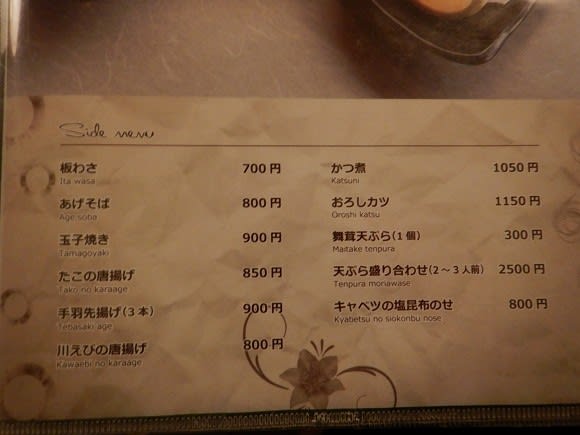 Side menu
板わさ 700 円
Ita wasa
あげそば 800 円
Age soba
玉子焼き 900 円
Tamagoyaki
たこの唐揚げ 850 円
Tako no karaage
手羽先揚げ(3本) 900 円
Tebasaki age
川えびの唐揚げ 800 円
Kawaebi no karaage
かつ煮 1050 円
Katsuni
おろしカツ 1150 円
Oroshi katsu
舞茸天ぷら(1個) 300 円
Maitake tenpura
天ぷら盛り合わせ(2～3人前) 2500 円
Tenpura moriawase
キャベツの塩昆布のせ 800 円
Kyabetsu no siokonbu nose